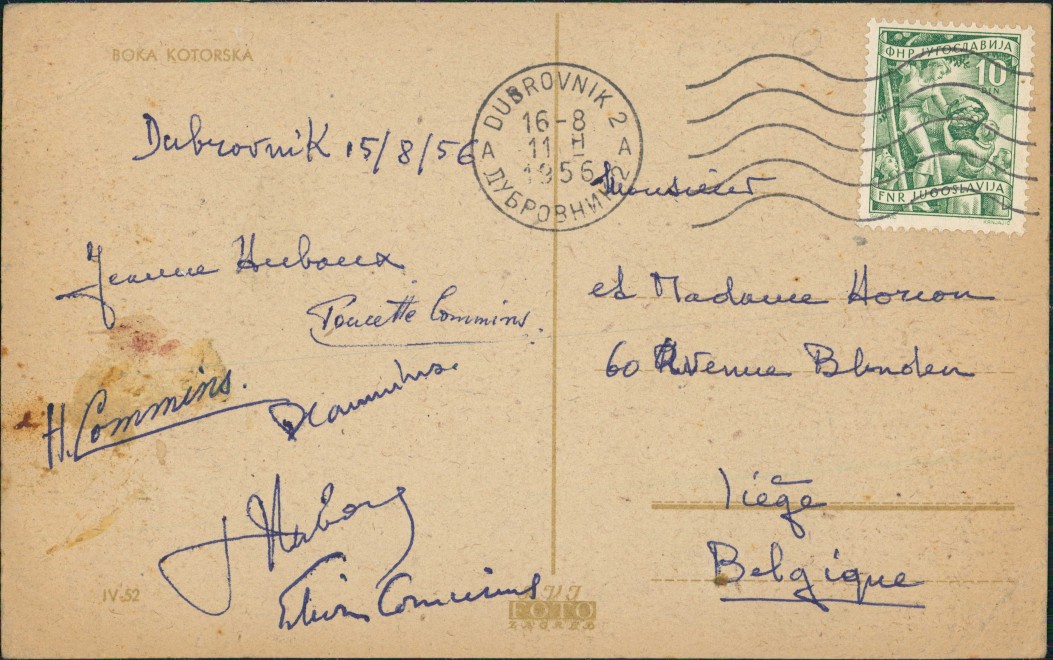 BOKA KOTORSKA
Dubrovnik 15/8/56
Jeanne Huboux
Poucette Commins.
H. Commins.
Commins
IV-52
FOTO
ZAGREB
DUBROVNIK 2
A A
16-8
11 H
1956
ДУБРОВНИК 2
ФНР ЈУГОСЛАВИЈА
10
DIN
FNR JUGOSLAVIJA
Monsieur
et Madame Horion
60 Avenue Blonden
Liége
Belgique